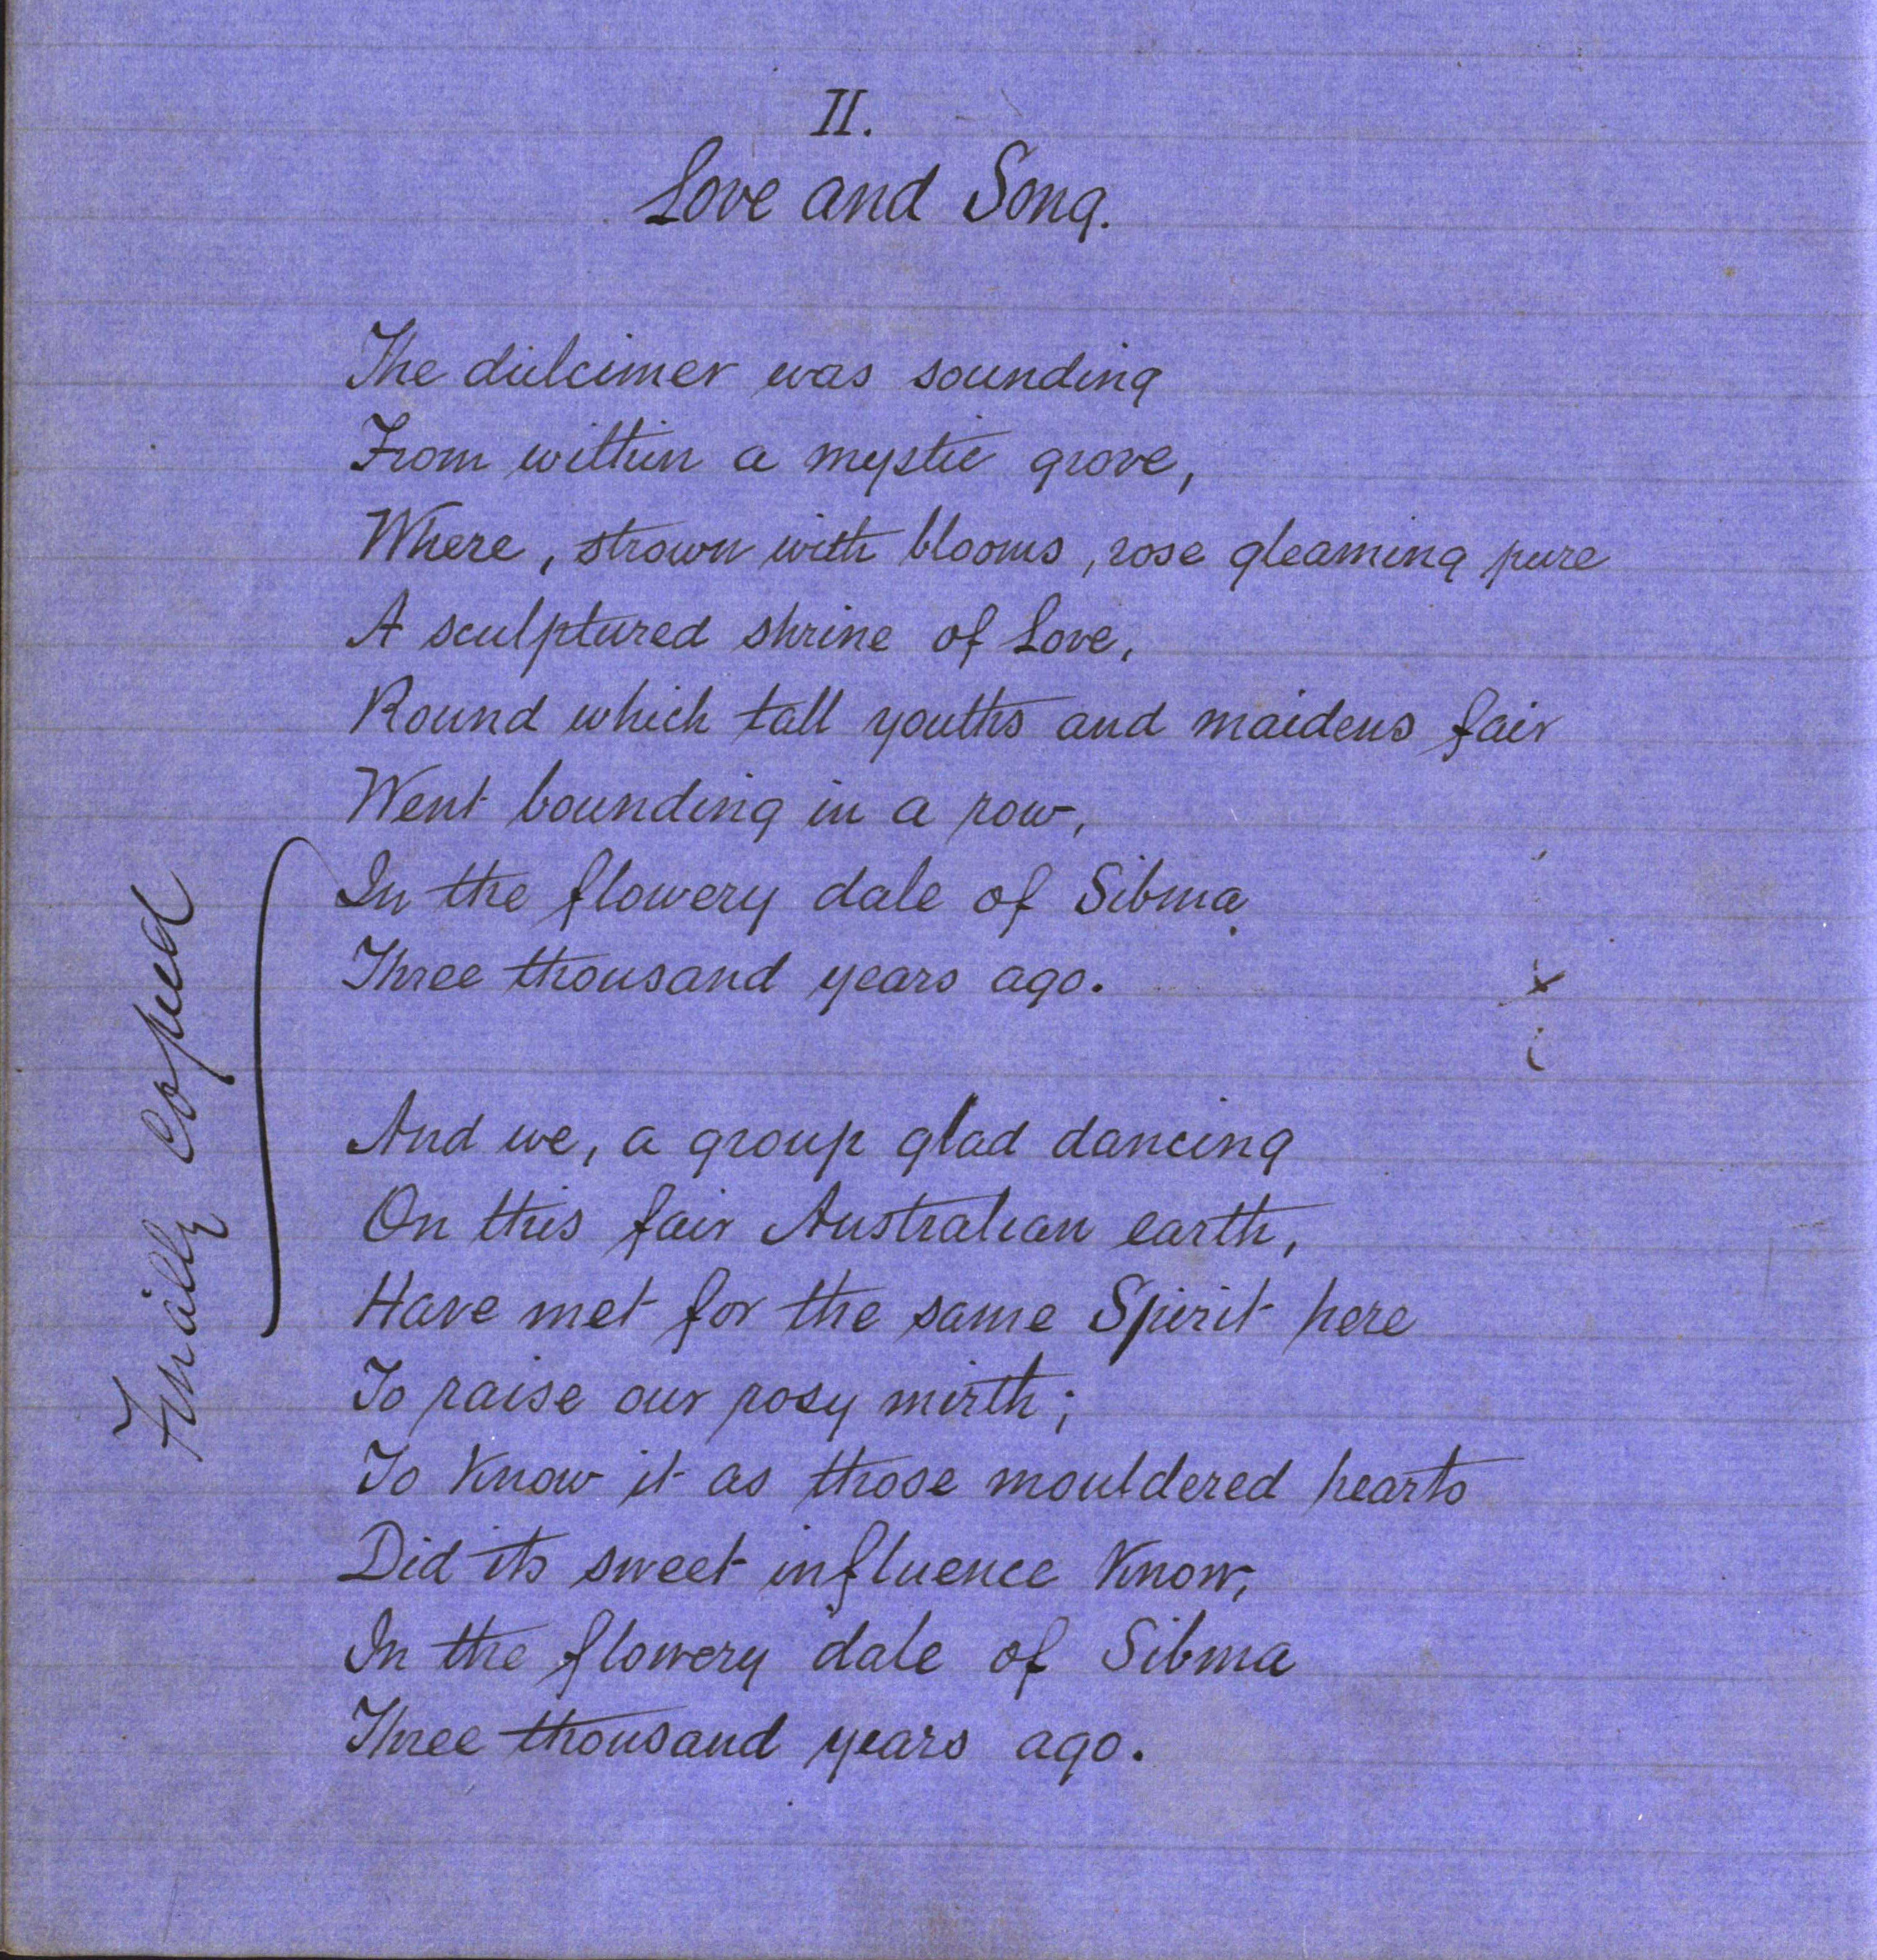 II.
Love and Song.
The dulcimer was sounding
From within a mystic grove,
Where, strown with blooms, rose gleaming pure
A sculptured shrine of Love,
Round which tall youths and maidens fair
Went bounding in a row,
In the flowery dale of Sibma
Three thousand years ago.
And we, a group glad dancing
On this fair Australian earth,
Have met for the same Spirit here
To raise our rosy mirth;
To know it as those mouldered hearts
Did its sweet influence know,
In the flowery dale of Sibma
Three thousand years ago.
Finally Copied